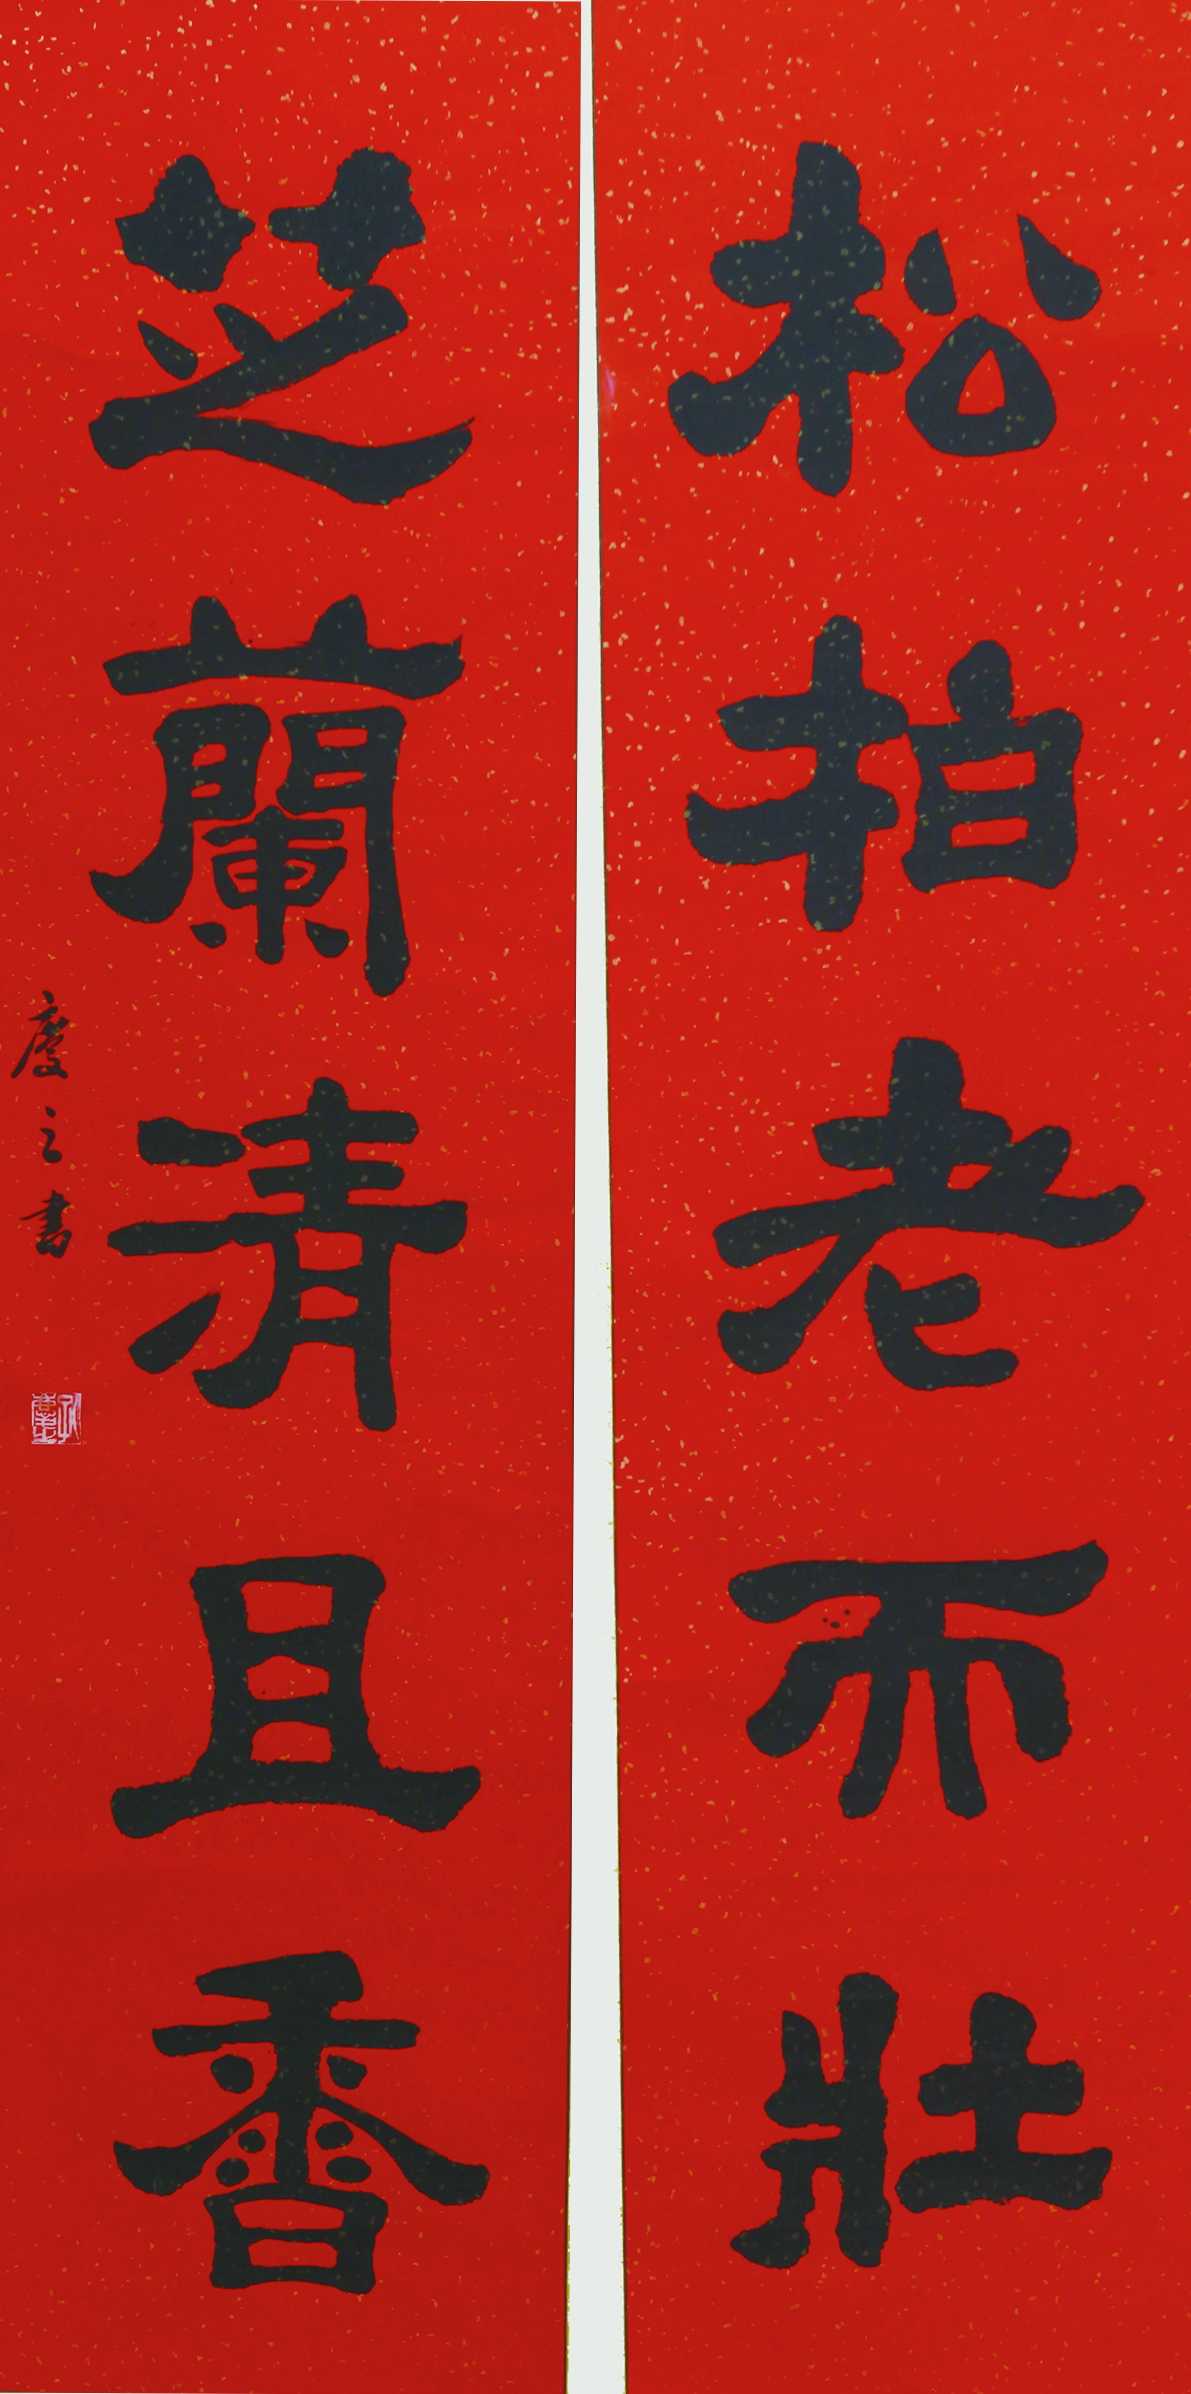 松拍老而壯
芝蘭清且香
慶之書